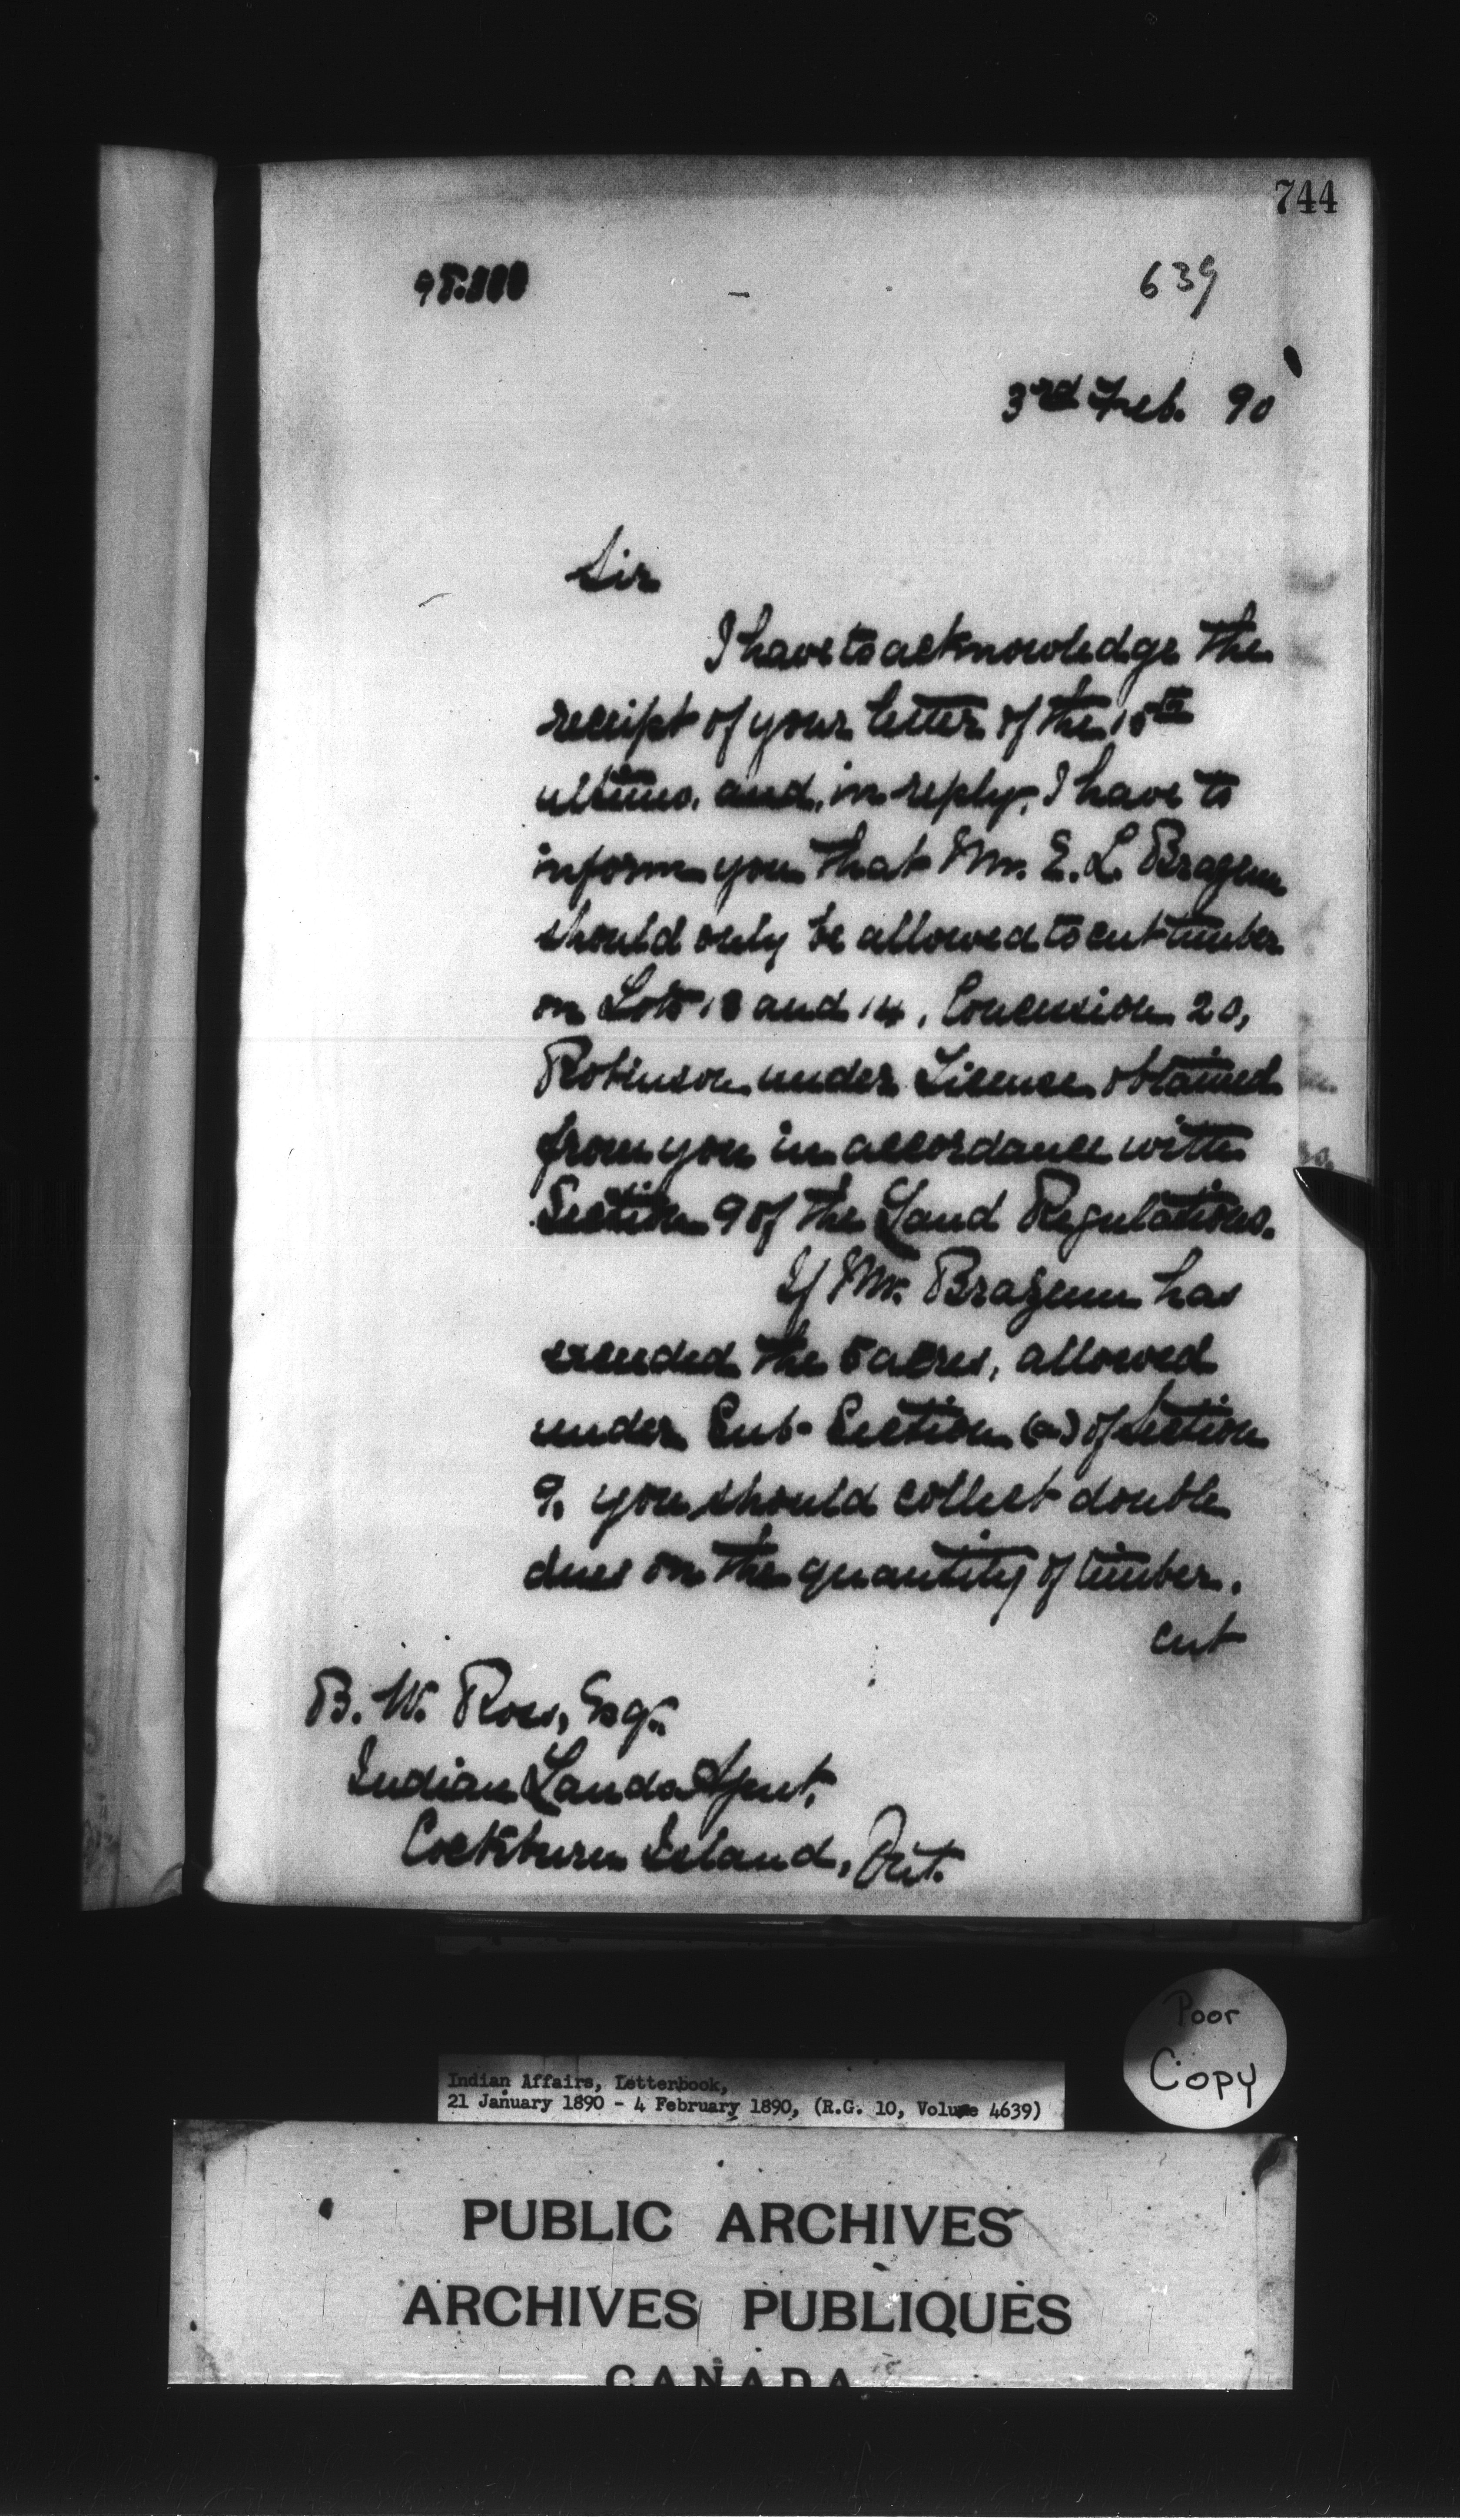 744
639
3rd Feb. 90
Sir
I have to acknowledge the
receipt of your letter of the 15th
ultimo, and, in reply, I have to
inform you that Mr. E. L. Brazenn
should only be allowed to cut timber
on Lots 13 and 14, Concession 20,
Robinson under License obtained
from you in accordance with
Section 9 of the Land Regulations.
If Mr. Brazenn has
exceeded the 5 acres, allowed
under Sub-Section (a) of Section
9, you should collect double
dues on the quantity of timber.
cut
B. W. Ross, Esq.
Indian Lands Agent,
Cockburn Island, Ont.
Poor
Copy
Indian Affairs, Letterbook,
21 January 1890 - 4 February 1890, (R.G. 10, Volume 4639)
PUBLIC ARCHIVES
ARCHIVES PUBLIQUES
CANADA